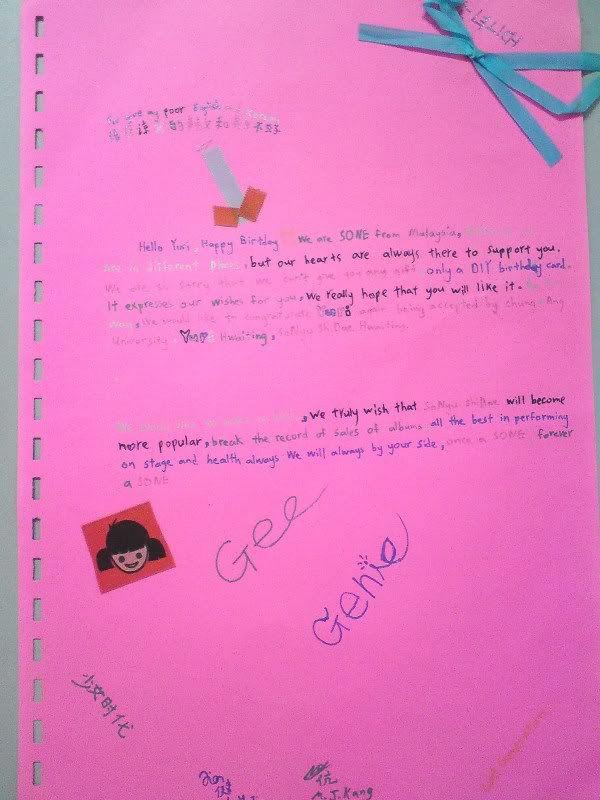 LELICH
my Poor English and Korean
请原谅我的韩文和英文不好
Hello Yuri, Happy Birtday We are SONE from Malaysia,
are in different places, but our hearts are always there to support you.
We are so sorry that we can't give you any gift only a DIY birthday card.
It expresses our wishes for you, We really hope that you will like it.
Way, We would like to congratulate Yuri again being accepted by Chung-Ang
University. Yuri Hwaiting, SoNyu ShiDae Hwaiting
We would like to make a wish, We truly wish that SoNyu ShiDae will become
more popular, break the record of sales of albums all the best in performing
on stage and health always We will always by your side, once a SONE forever
a SONE
Gee
Genie
少女时代
Girl Generation
J.Kang